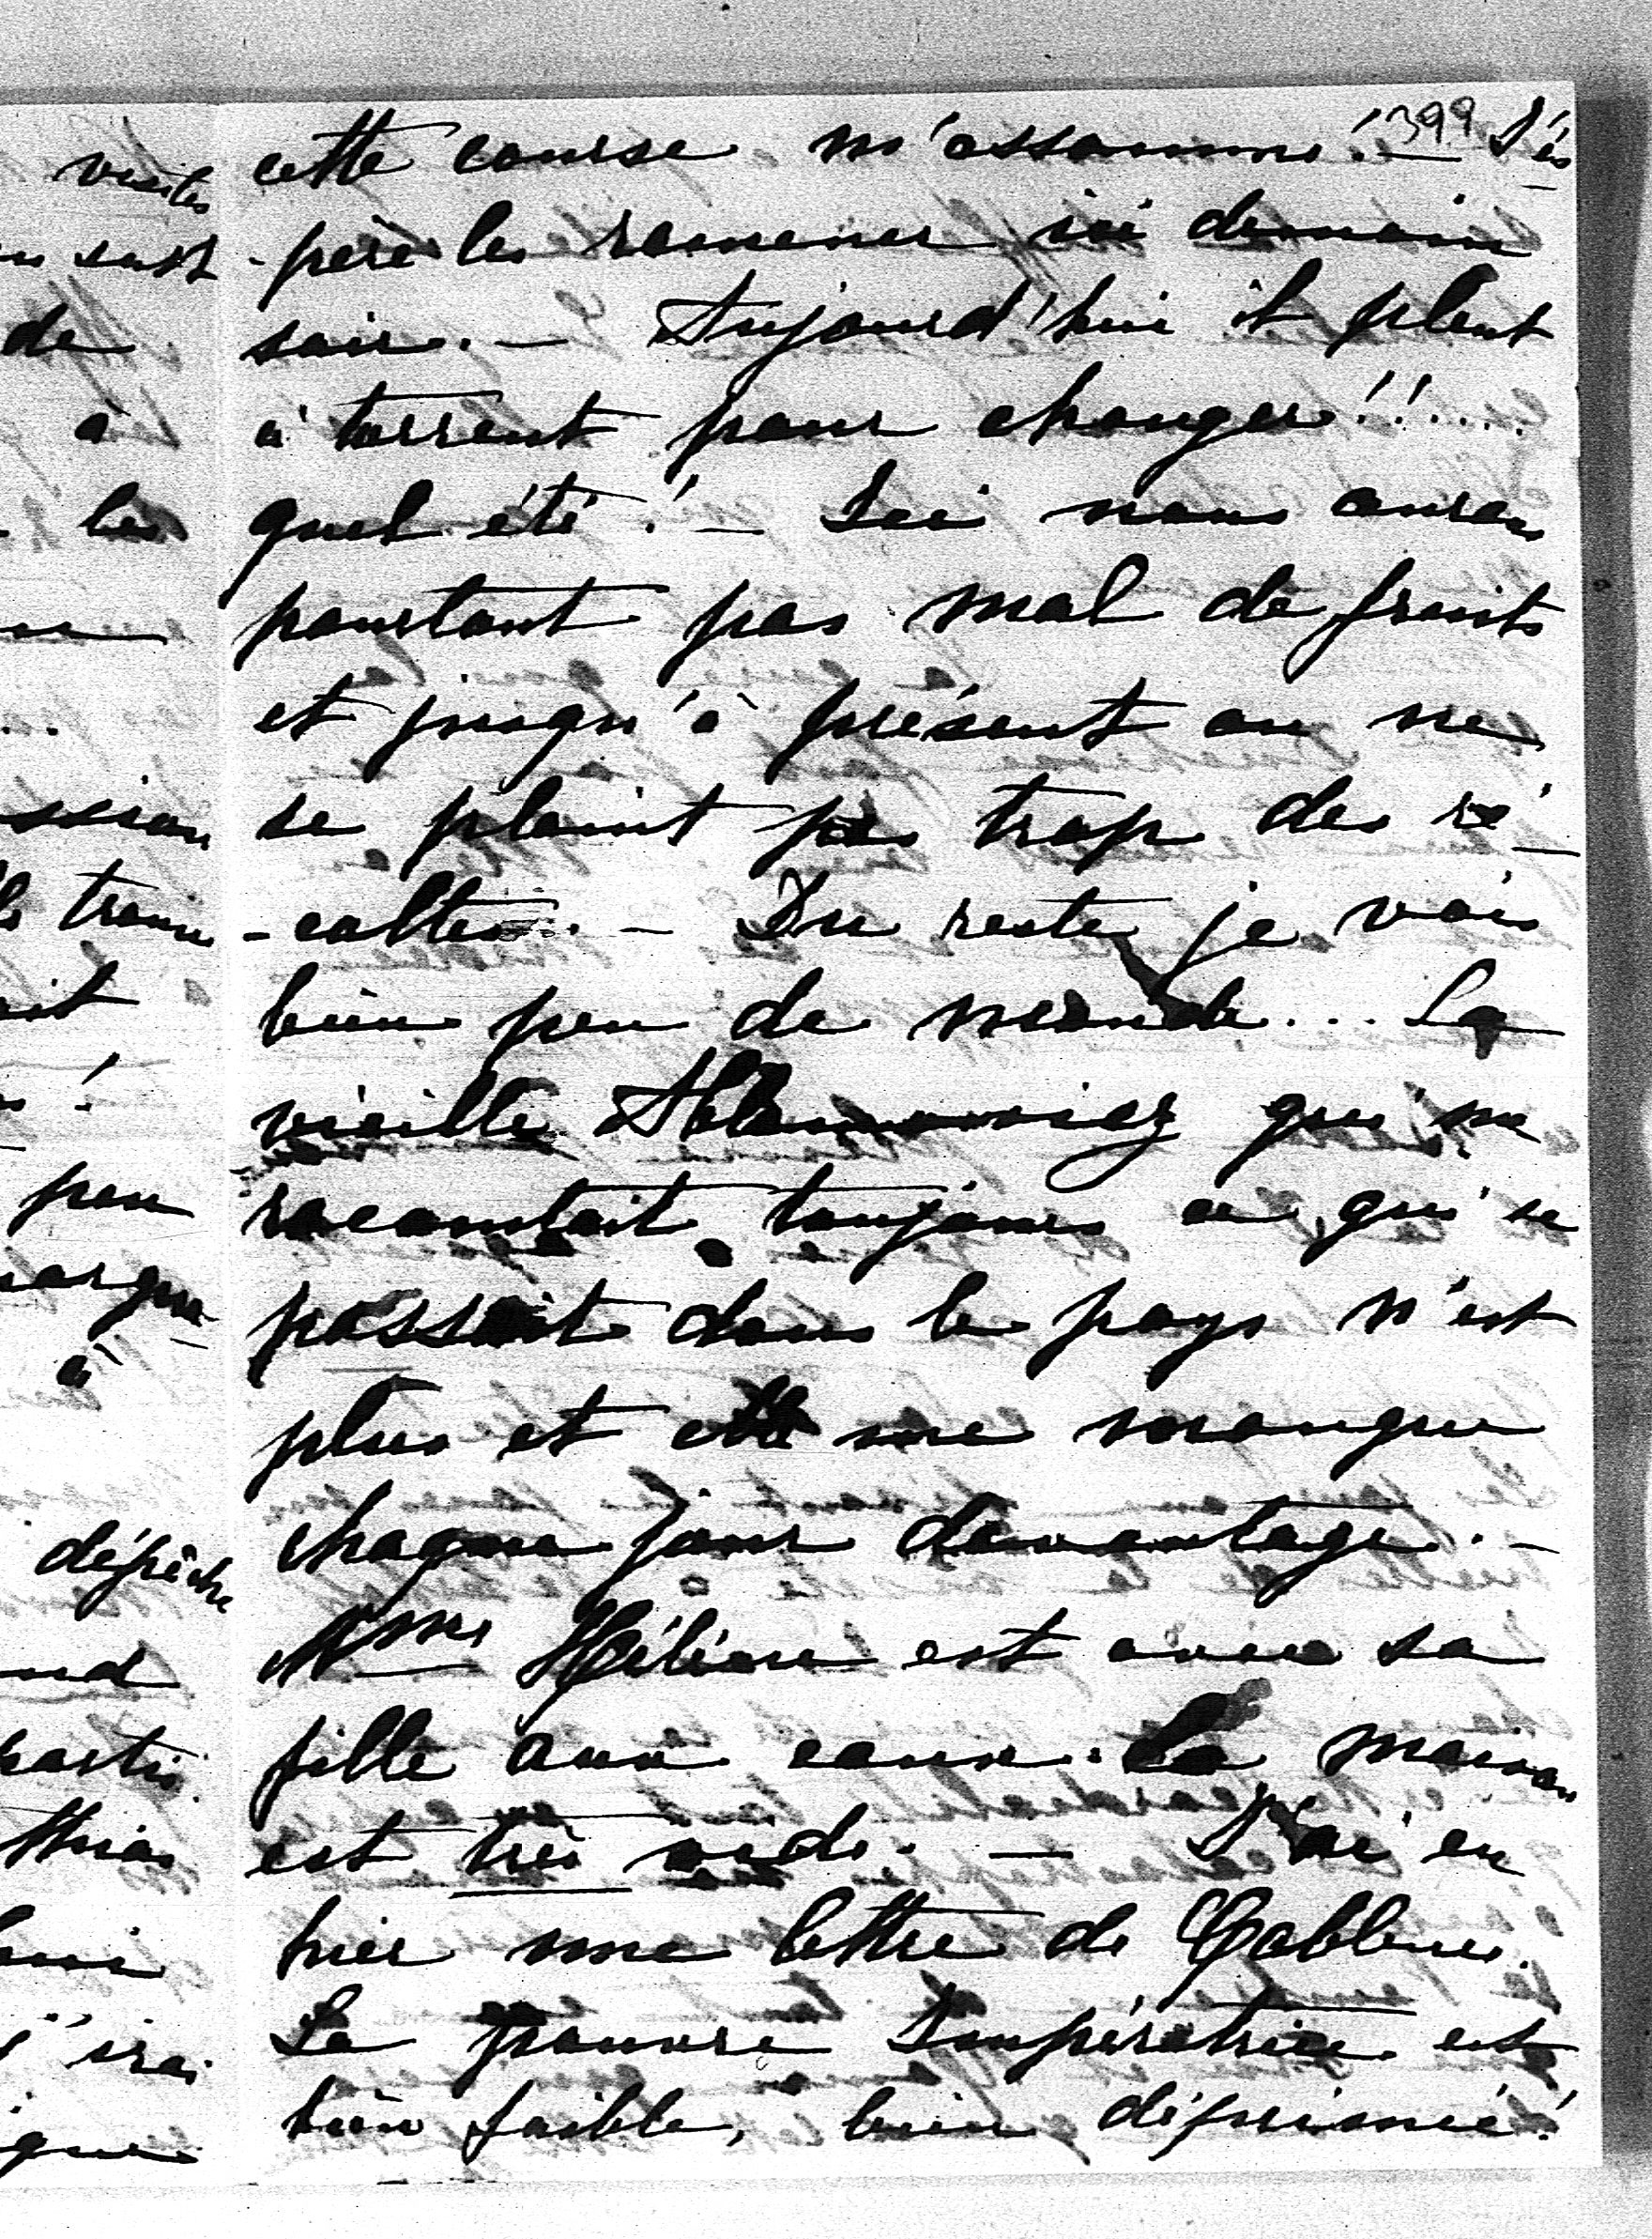 399
cette course m'assomme! — J'es
-père les ramener ici demain
soir. — Aujourd'hui il pleut
à torrent pour changer!!....
quel été! — Ici nous avons
pourtant pas mal de fruits
et jusqu'à présent on ne
se plaint pas trop des ré-
-coltes. — Du reste je vois
bien peu de monde... La
vieille qui me
racontait toujours ce qui se
passait dans le pays n'est
plus et elle me manque
chaque jour davantage. —
Mme Hélène est avec sa
fille aux eaux. La maison
est très vide. — J'ai eu
hier une lettre de Coblence.
La pauvre Impératrice est
bien faible, bien déprimée!